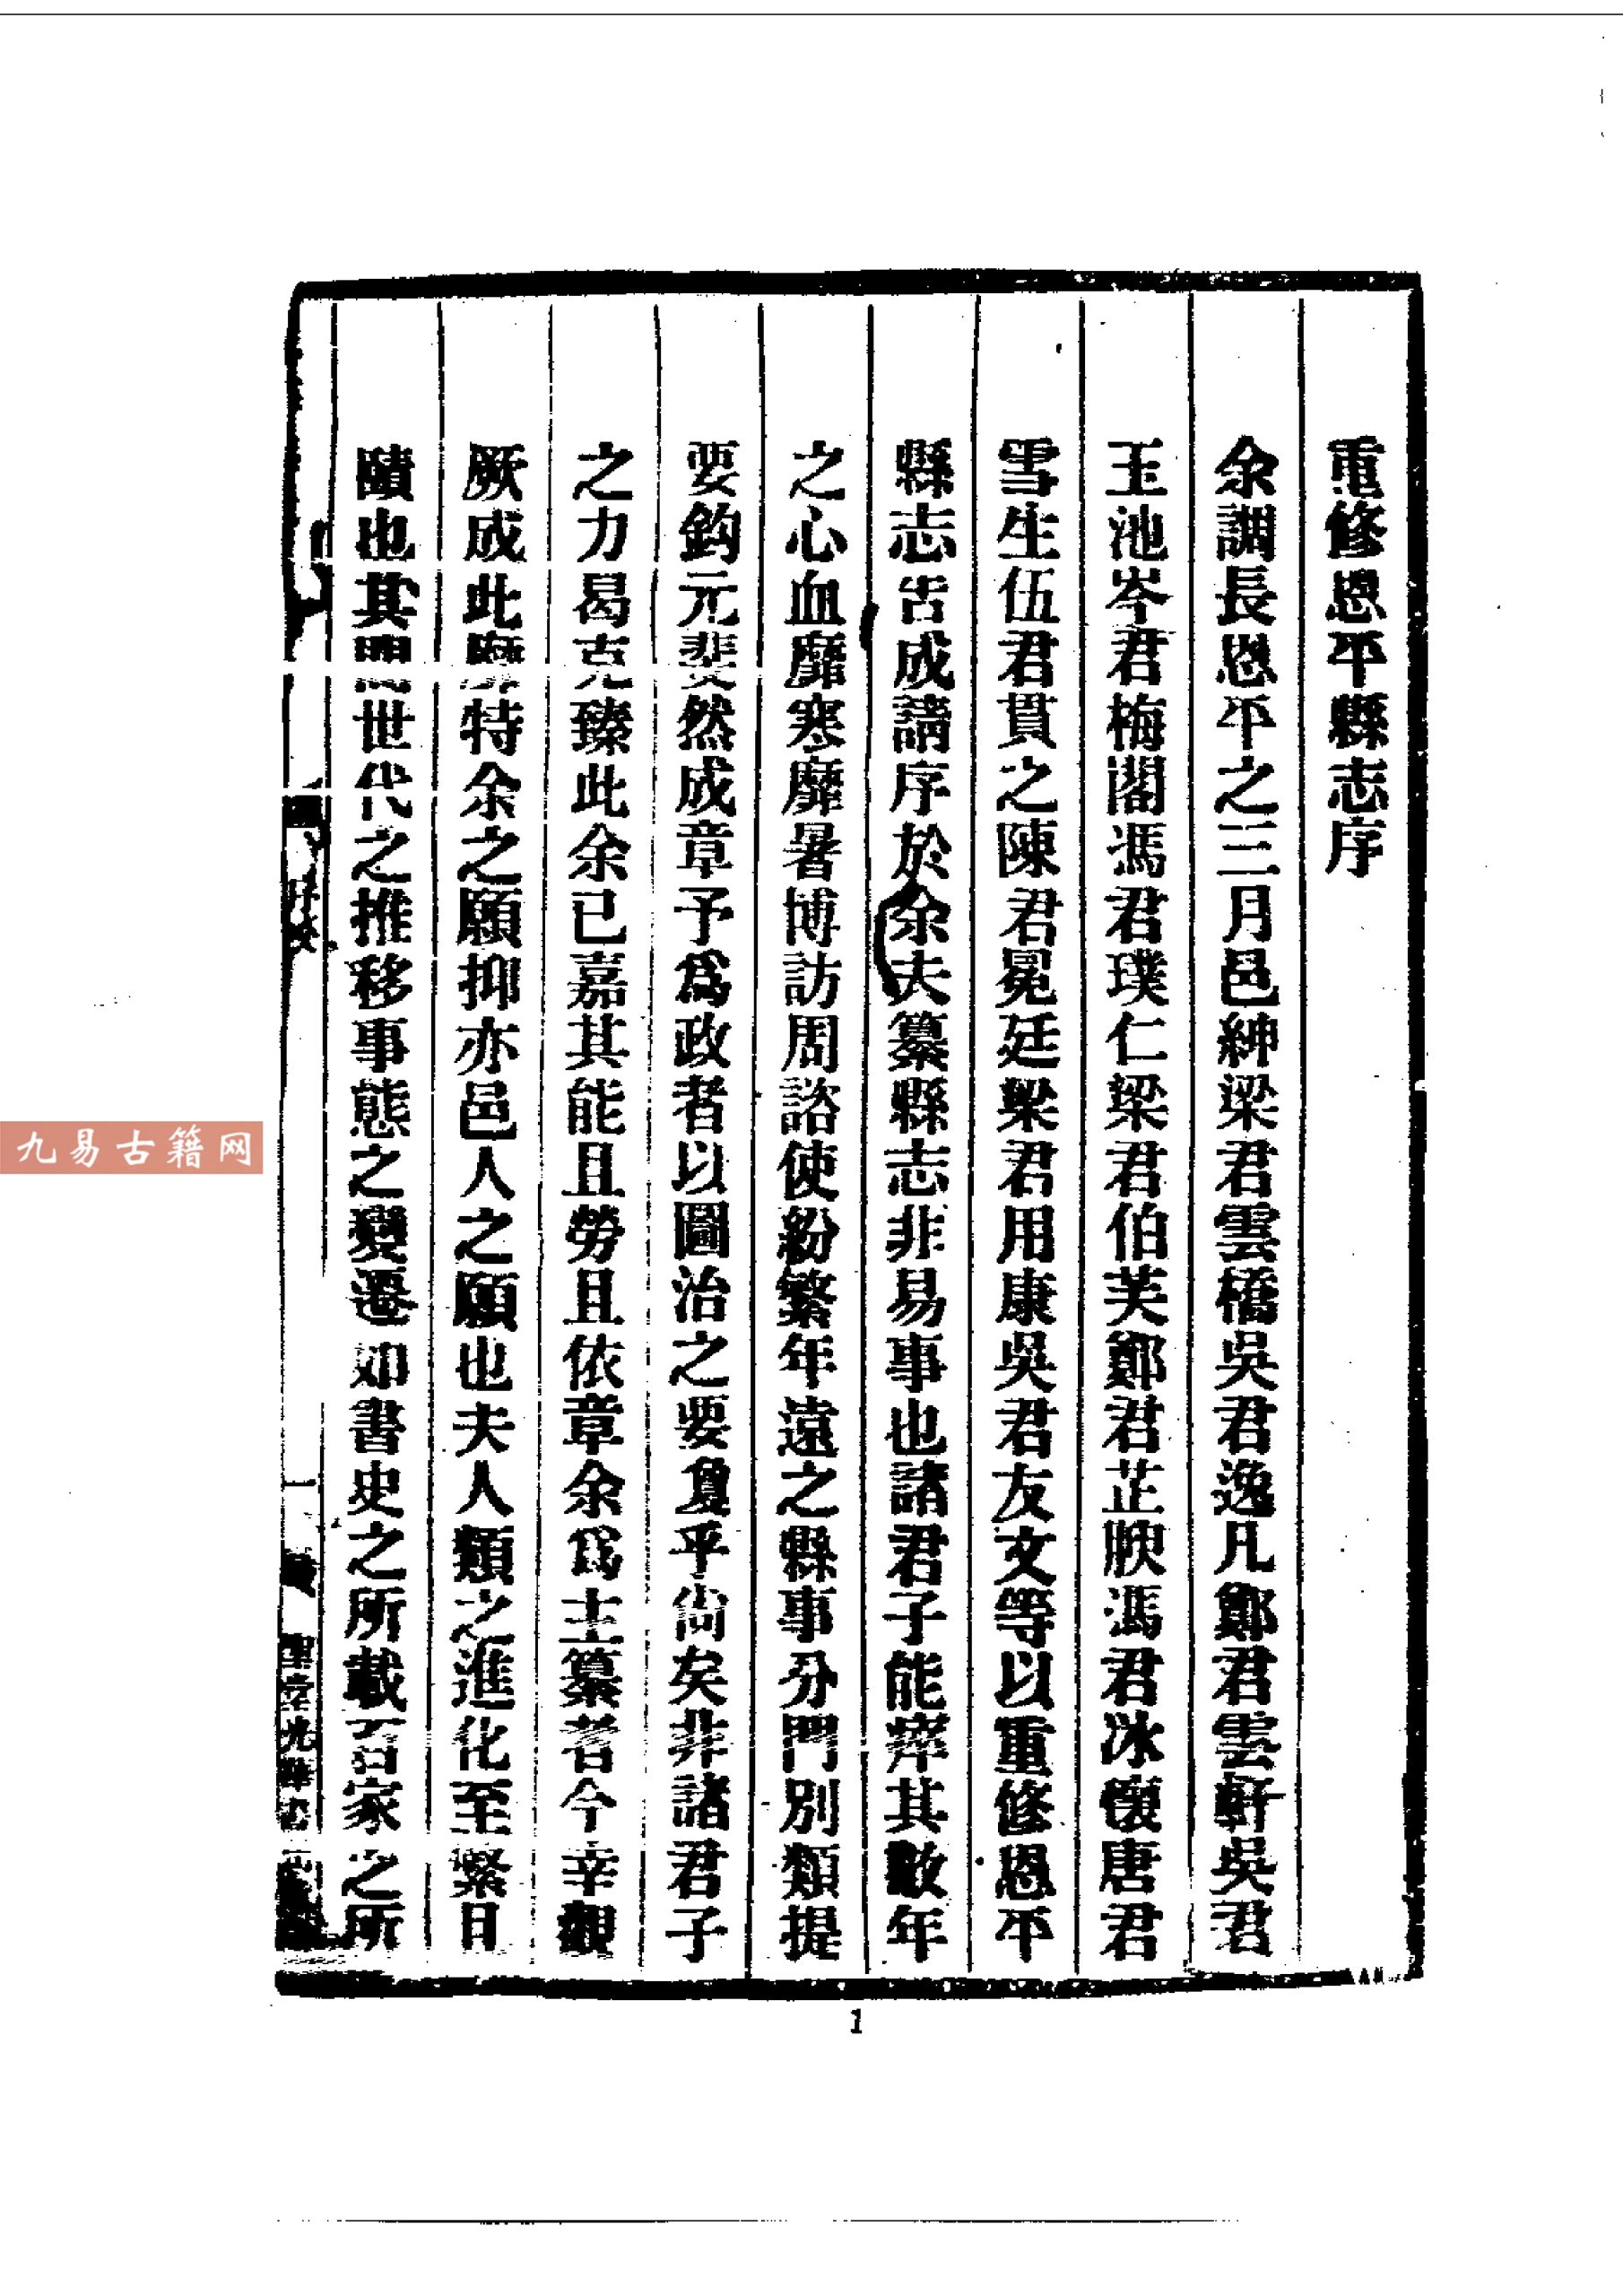 重修恩平縣志序
余調長恩平之三月邑紳梁君雲橋吳君逸凡鄭君雲軒吳君
玉池岑君梅閣馮君璞仁梁君伯芙鄭君芷腴馮君冰懷唐君
雪生伍君貫之陳君冕廷梁君用康吳君友文等以重修恩平
縣志告成請序於余夫纂縣志非易事也諸君子能瘁其數年
之心血靡寒靡暑博訪周諮使紛繁年遠之縣事分門別類提
要鈎元斐然成章予為政者以圖治之要敻乎尚矣非諸君子
之力曷克臻此余已嘉其能且勞且依章余為主纂者今幸觀
厥成此靡特余之願抑亦邑人之願也夫人類之進化至緊日
賾也其間世代之推移事態之變遷如書史之所載百家之所
序
一
聖堂光華書
1
九易古籍网